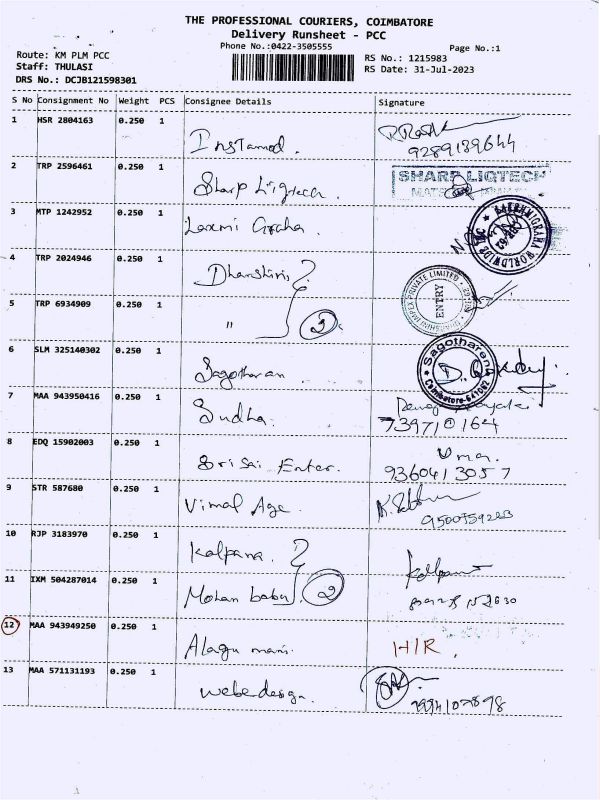 THE PROFESSIONAL COURIERS, COIMBATORE
Delivery Runsheet - PCC
Phone No.:0422-3505555
Page No.:1
Route: KM PLM PCC
Staff: THULASI
DRS No.: DCJB121598301
RS No.: 1215983
RS Date: 31-Jul-2023
S No Consignment No Weight PCS Consignee Details Signature
1 HSR 2804163 0.250 1
Instamed.
9289139644
2 TRP 2596461 0.250 1
SHARP LIQTECH
Sharp Liqtech.
3 MTP 1242952 0.250 1
Laxmi Graha
4 TRP 2024946 0.250 1
Dhanshivi
PRIVATE LIMITED
ENTRY
5 TRP 6934909 0.250 1
" 2
6 SLM 325140302 0.250 1
Sagotharan
Sagotharan
Coimbatore-641062
7 MAA 943950416 0.250 1
Sudha.
739710164
8 EDQ 15902003 0.250 1
Uma.
Sri Sai Enter.
9360413057
9 STR 587680 0.250 1
Vimal Age.
9500759223
10 RJP 3183970 0.250 1
Kalpana.
Kalpana
11 IXM 504287014 0.250 1
Mohan babu 2
12 MAA 943949250 0.250 1
Alagu mani.
H/R.
13 MAA 571131193 0.250 1
webedesign.